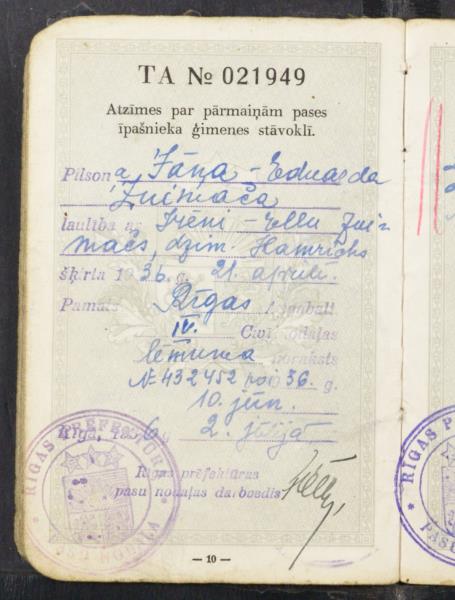 TA № 021949
Atzīmes par pārmaiņām pases
īpašnieka ģimenes stāvoklī.
Pilsoņa Jāņa-Eduarda
laulība ar Irēni-Ellu
dzim.
šķirta 1936. g. 21. aprīlī.
Pamats Rīgas apgabalt.
IV. Civilnodaļas
lēmuma noraksts
№ 432452 no 36. g.
10. jūn.
Rīgā, 1936 g. 2. jūlijā
Rīgas prefektūras
pasu nodaļas darbvedis
RĪGAS PREFEKTŪRA
PASU NODAĻA
— 10 —
RĪGAS P
PASU